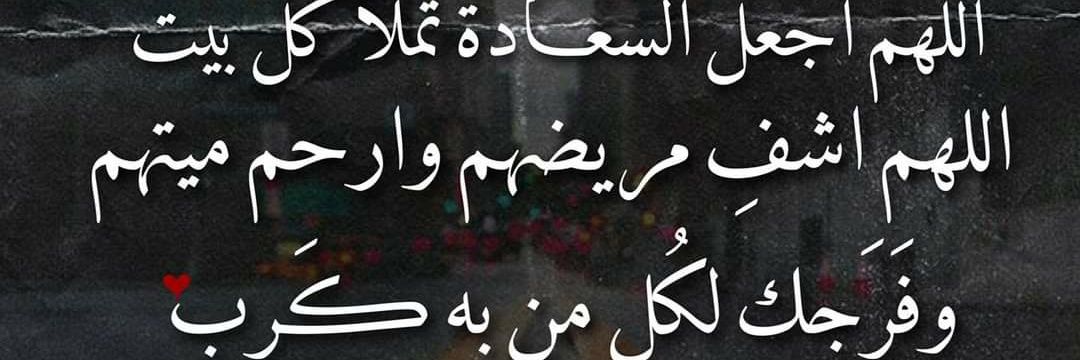 اللهم اجعل السعادة تملا كل بيت
اللهم اشفِ مريضهم وارحم ميتهم
وفَرَجك لكُل من به كَرب